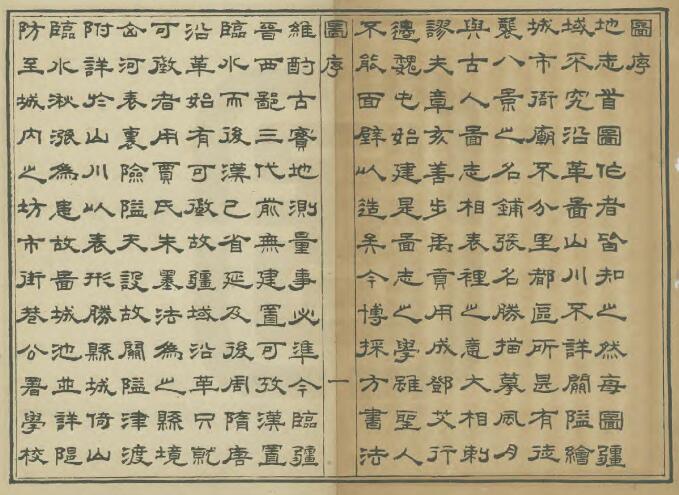 圖序
地志首圖作者皆知之然每圖疆
域不究沿革圖山川不詳關隘繪
城市衙廟不分里都區所甚有徒
襲八景之名鋪張名勝描摹風月
與古人圖志相表裡之意大相刺
謬夫章亥善步禹貢用成鄧艾行
邊魏屯始建是圖志之學雖聖人
不能面壁以造矣今博採方書法
圖序 一
維酌古實地測量事必準今臨疆
晉西鄙三代前無建置可攷漢置
臨水而後漢已省延及後周隋唐
沿革始有可徵故疆域沿革只就
可徵者用賈氏朱墨法為之縣境
河表裏險隘天設故關隘津渡
附詳於山川以表形勝縣城倚山
臨水湫漲為患故圖城池並詳隄
防至城內之坊市街巷公署學校